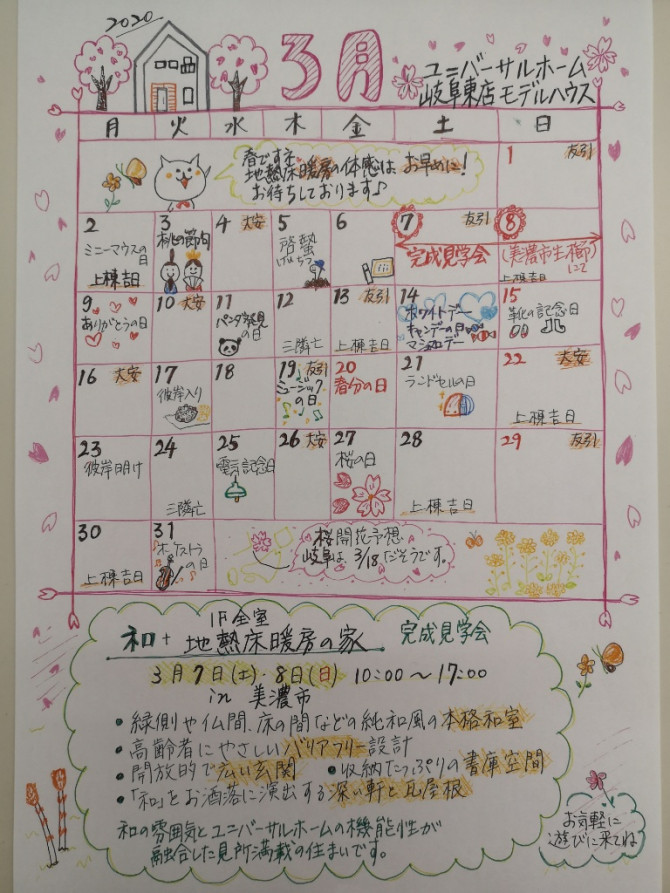 2020
3月
ユニバーサルホーム
岐阜東店 モデルハウス
月 火 水 木 金 土 日
春ですネ
地熱床暖房の体感は お早めに!
お待ちしております♪
1 友引
2
ミニーマウスの日
上棟吉日
3
桃の節句
4 大安
5
啓蟄
けいちつ
6
7 友引
完成見学会
8
(美濃市生櫛)にて
上棟吉日
9
ありがとうの日
10 大安
11
パンダ発見の日
12
三隣亡
13 友引
上棟吉日
14
ホワイトデー
キャンデーの日
マシュマロデー
15
靴の記念日
16 大安
17
彼岸入り
18
19 友引
ミュージックの日
20
春分の日
21
ランドセルの日
22 大安
上棟吉日
23
彼岸明け
24
三隣亡
25
電気記念日
26 大安
27
桜の日
28
上棟吉日
29 友引
30
上棟吉日
31
オーケストラの日
桜開花予想
岐阜は 3/18だそうです。
1F全室
和+地熱床暖房の家 完成見学会
3月7日(土)・8日(日) 10:00〜17:00
in 美濃市
・縁側や仏間、床の間などの純和風の本格和室
・高齢者にやさしいバリアフリー設計
・開放的で広い玄関 ・収納たっぷりの書庫空間
・「和」をお洒落に演出する深い軒と瓦屋根
和の雰囲気とユニバーサルホームの機能性が
融合した見所満載の住まいです。
お気軽に
遊びに来てね